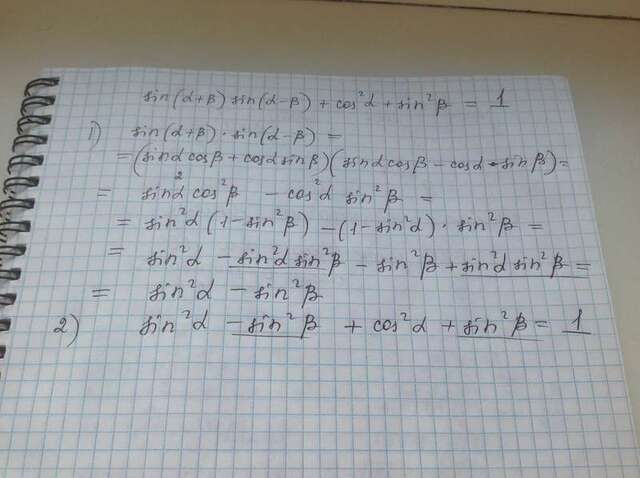 sin(α+β) sin(α-β) + cos²α + sin²β = 1
1) sin(α+β) · sin(α-β) =
= (sinα cosβ + cosα sinβ)(sinα cosβ - cosα · sinβ) =
= sin²α cos²β - cos²α sin²β =
= sin²α (1 - sin²β) - (1 - sin²α) · sin²β =
= sin²α - sin²α sin²β - sin²β + sin²α sin²β =
= sin²α - sin²β
2) sin²α - sin²β + cos²α + sin²β = 1